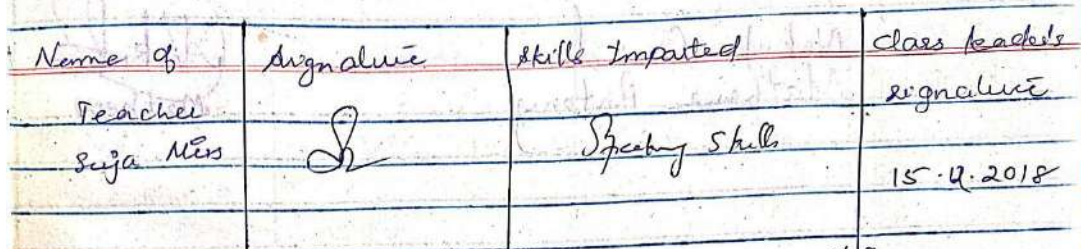 Name of Signature Skills Imparted Class leader's
Teacher signature
Suja Miss Speaking Skills
2018